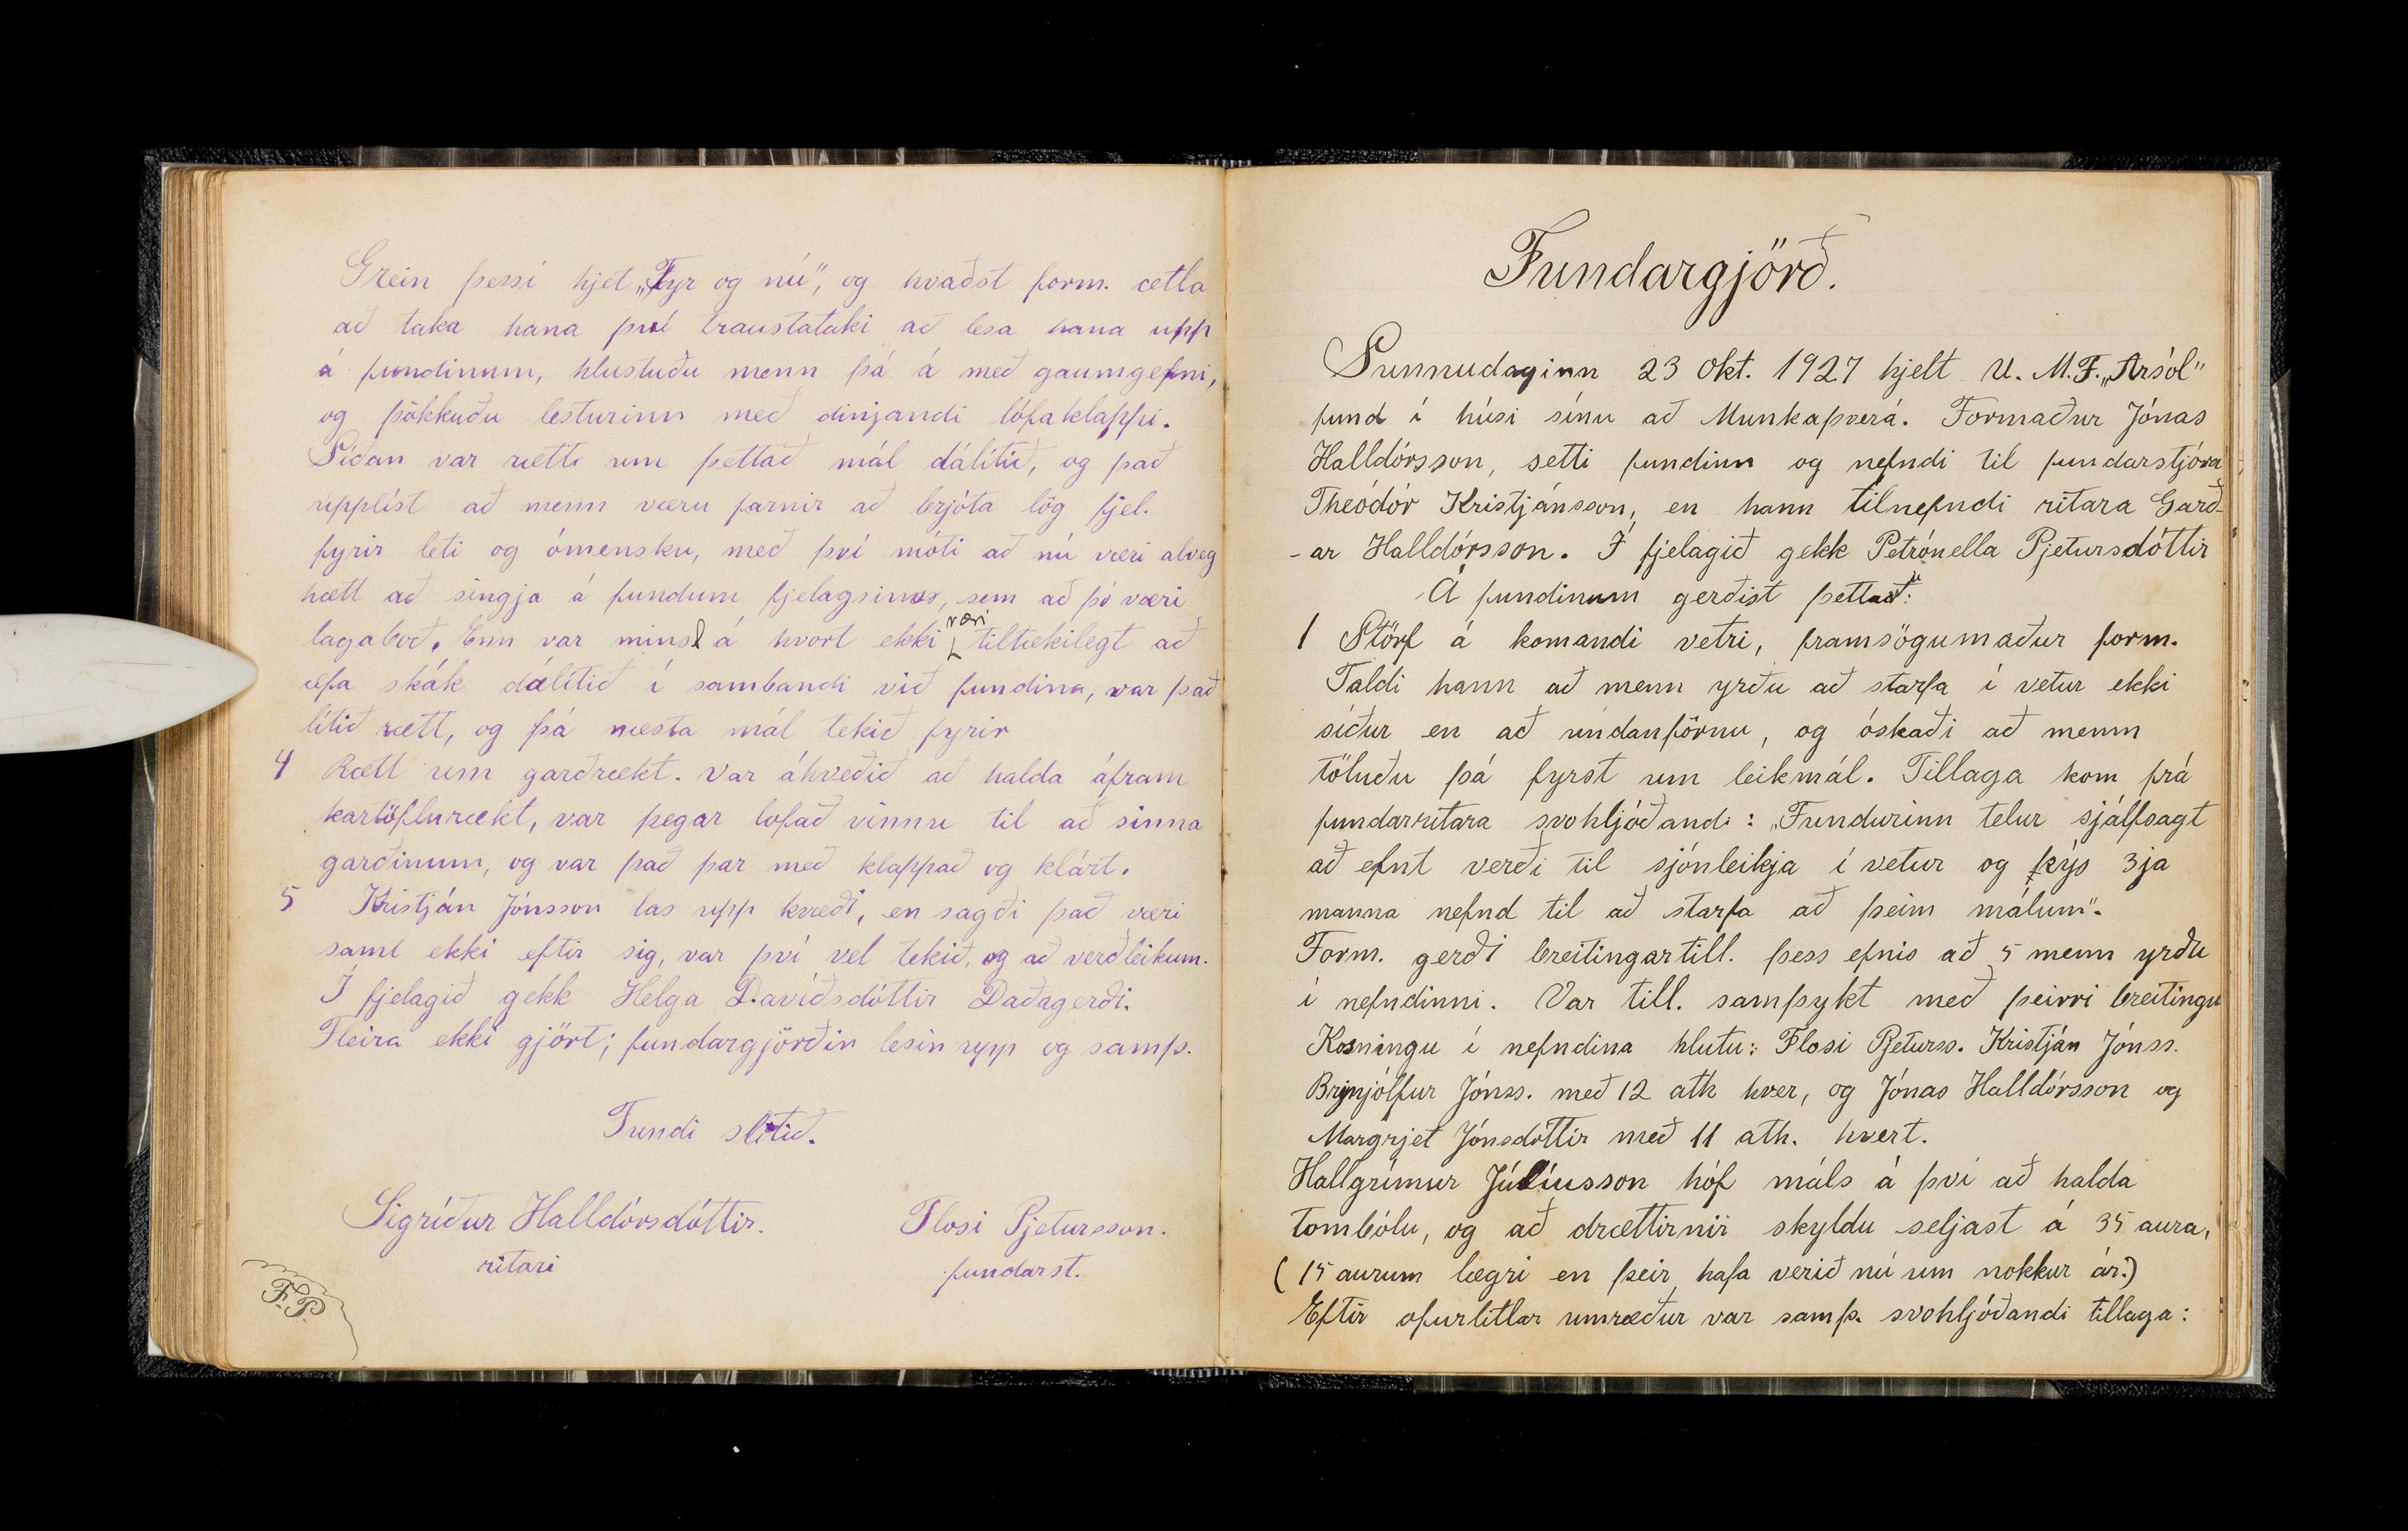 Grein þessi hjet „Fyr og nú", og kvaðst form. ætla
að taka hana því traustataki að lesa hana upp
á fundinum, hlustuðu menn þá á með gaumgefni,
og þökkuðu lesturinn með dinjandi lófaklappi.
Síðan var rætti um þettað mál dálítið, og það
upplíst að menn væru farnir að brjóta lög fjel.
fyrir leti og ómensku, með því móti að nú væri alveg
hætt að singja á fundum fjelagsinns, sem að þó væri
lagaboð. Enn var minst á hvort ekki væri tiltækilegt að
æfa skák dálítið í sambandi við fundina, var það
lítið rætt, og þá næsta mál tekið fyrir
4 Rætt um garðrækt. Var ákveðið að halda áfram
kartöflurækt, var þegar lofað vinnu til að sinna
garðinum, og var það þar með klappað og klárt.
5 Kristján Jónsson las upp kvæði, en sagði það væri
samt ekki eftir sig, var því vel tekið, og að verðleikum.
Í fjelagið gekk Helga Davíðsdóttir Daðagerði.
Fleira ekki gjört; fundargjörðin lesin upp og samþ.
Fundi slitið.
Sigríður Halldórsdóttir.
ritari
Flosi Pjetursson.
fundarst.
F.P.
Fundargjörð.
Sunnudaginn 23 okt. 1927 hjelt U. M. F. „Ársól"
fund í húsi sínu að Munkaþverá. Formaður Jónas
Halldórsson, setti fundinn og nefndi til fundarstjóra
Theódór Kristjánsson, en hann tilnefndi ritara Garð-
-ar Halldórsson. Í fjelagið gekk Petrónella Pjetursdóttir
Á fundinum gerðist þettað:
1 Störf á komandi vetri, framsögumaður form.
Taldi hann að menn yrðu að starfa í vetur ekki
síður en að undanförnu, og óskaði að menn
töluðu þá fyrst um leikmál. Tillaga kom frá
fundarritara svohljóðandi: „Fundurinn telur sjálfsagt
að efnt verði til sjónleikja í vetur og kýs 3ja
manna nefnd til að starfa að þeim málum".
Form. gerði breitingartill. þess efnis að 5 menn yrðu
í nefndinni. Var till. samþykt með þeirri breitingu
Kosningu í nefndina hlutu: Flosi Pjeturss. Kristján Jónss.
Brynjólfur Jónss. með 12 atk hver, og Jónas Halldórsson og
Margrjet Jónsdóttir með 11 atk. hvert.
Hallgrímur Júlíusson hóf máls á því að halda
tombólu, og að drættirnir skyldu seljast á 35 aura,
(15 aurum lægri en þeir hafa verið nú um nokkur ár.)
Eftir ofurlitlar umræður var samþ. svohljóðandi tillaga: